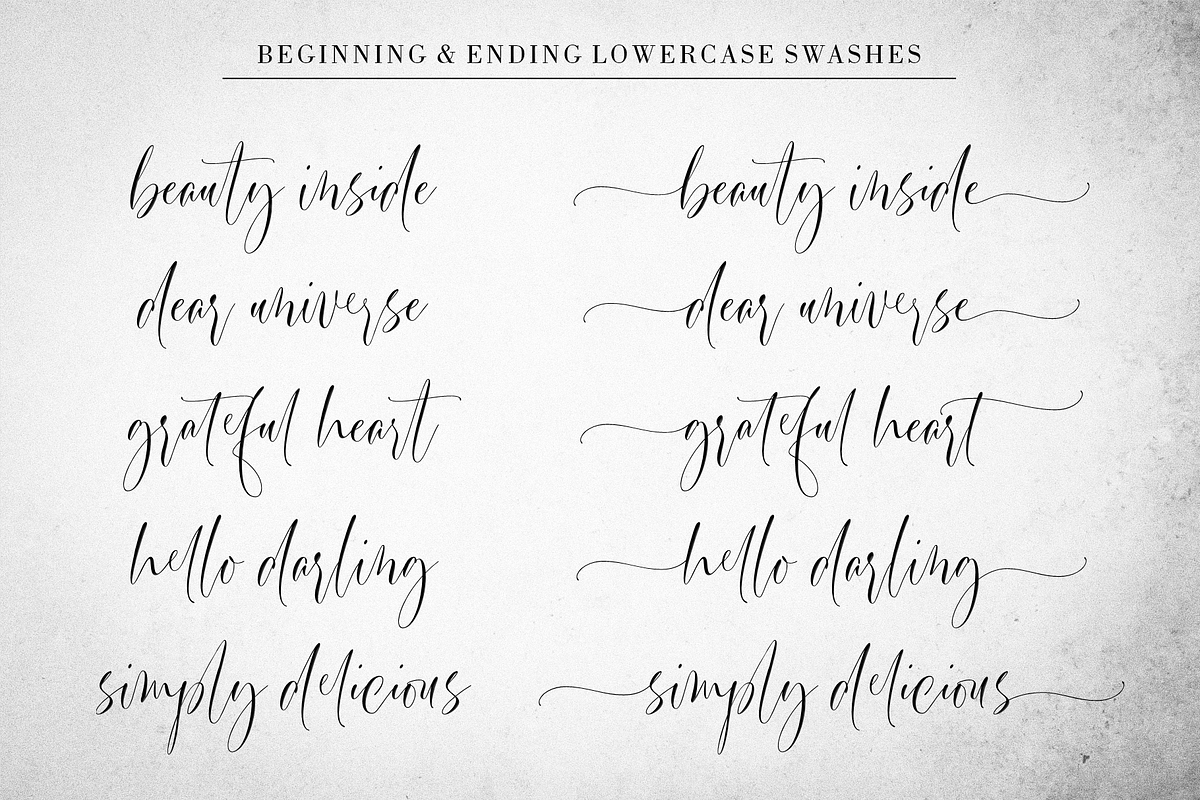 BEGINNING & ENDING LOWERCASE SWASHES
beauty inside beauty inside
dear universe dear universe
grateful heart grateful heart
hello darling hello darling
simply delicious simply delicious